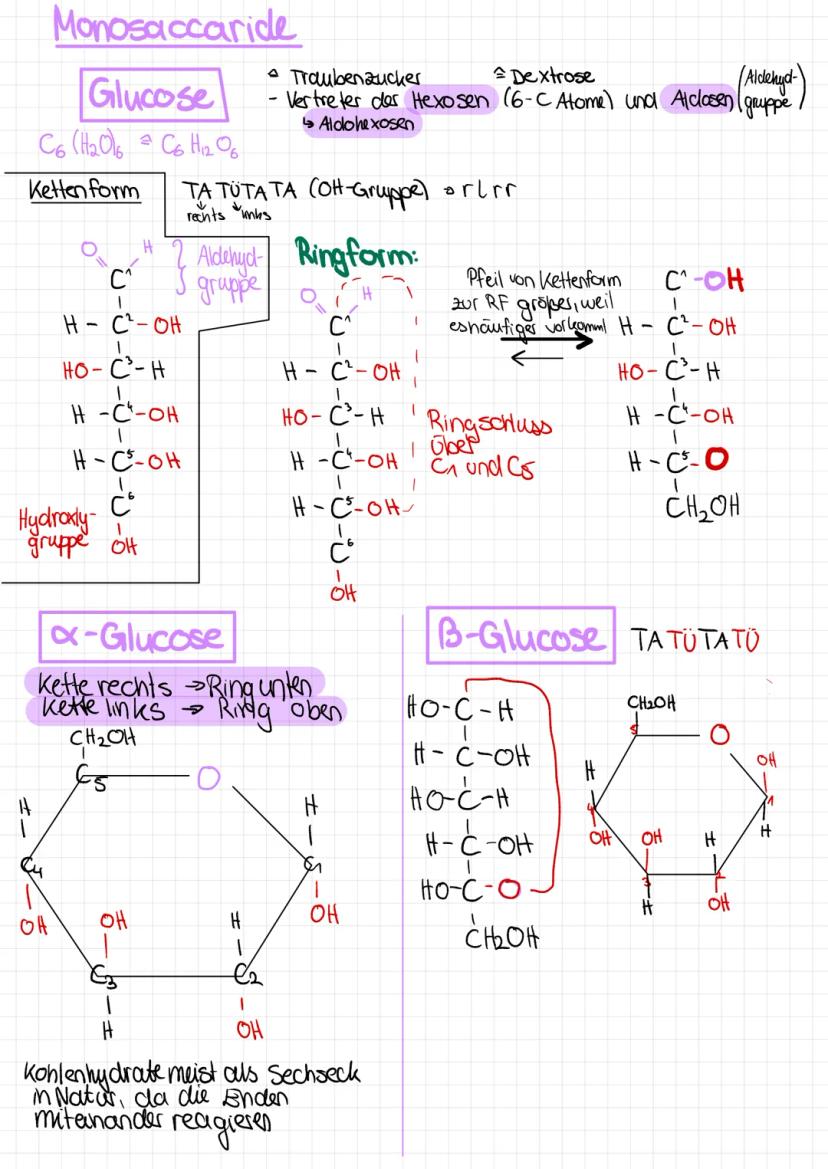 Monosaccaride
Glucose
≙ Traubenzucker ≙ Dextrose
- Vertreter der Hexosen (6-C Atome) und Aldosen (Aldehyd-
gruppe)
↳ Aldohexosen
C6(H2O)6 ≙ C6H12O6
Kettenform
TATÜTATA (OH-Gruppe) → rlrr
rechts links
O H
Aldehyd-
gruppe
C1
H - C2 - OH
HO - C3 - H
H - C4 - OH
H - C5 - OH
C6
OH
Hydroxly-
gruppe
Ringform:
O H
C1
H - C2 - OH
HO - C3 - H
H - C4 - OH
H - C5 - OH
C6
OH
Ringschluss
über
C1 und C5
Pfeil von Kettenform
zur RF größer, weil
es häufiger vorkommt
C1 - OH
H - C2 - OH
HO - C3 - H
H - C4 - OH
H - C5 - O
CH2OH
α-Glucose
Kette rechts → Ring unten
Kette links → Ring oben
CH2OH
C5 O
H H
C4 C1
OH OH H OH
C3 C2
H OH
Kohlenhydrate meist als Sechseck
in Natur, da die Enden
miteinander reagieren
β-Glucose TATÜTATÜ
HO - C - H
H - C - OH
HO - C - H
H - C - OH
HO - C - O
CH2OH
CH2OH
5 O
OH
H
4 1
OH OH H H
3 2
H OH